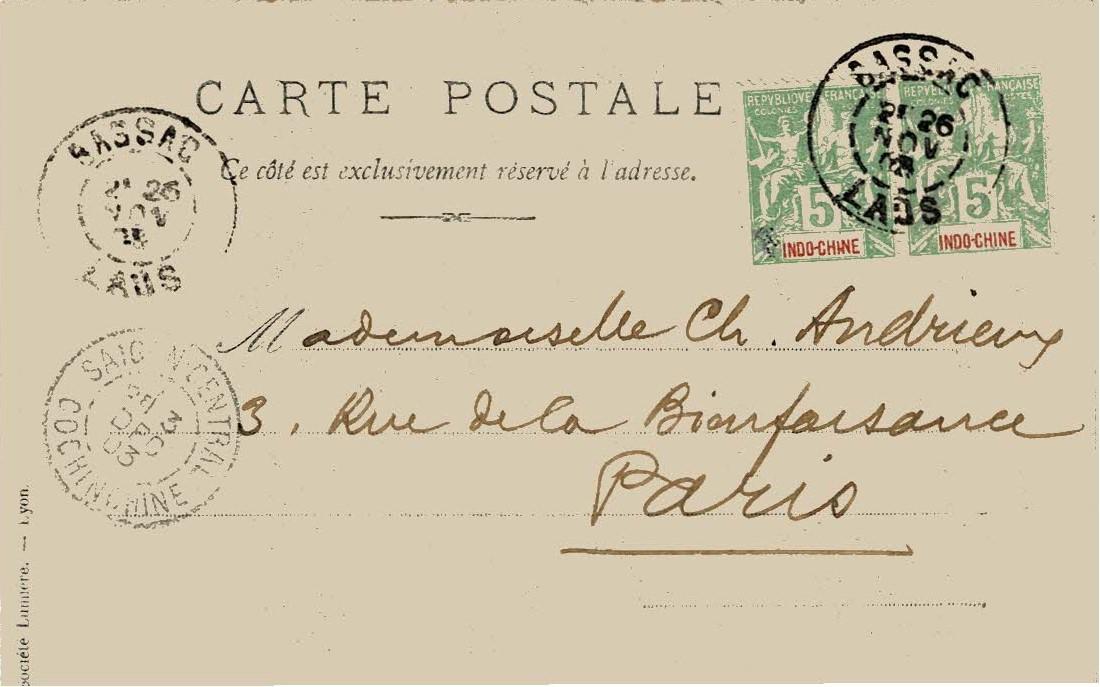 CARTE POSTALE
Ce côté est exclusivement réservé à l'adresse.
REPVBLIQVE FRANÇAISE
COLONIES
5
INDO-CHINE
REPVBLIQVE FRANÇAISE
COLONIES POSTES
5
INDO-CHINE
BASSAC
26
NOV
LAOS
BASSAC
26
NOV
LAOS
Mademoiselle Ch. Andrieux
3, Rue de la Bienfaisance
Paris
SAIGON CENTRAL
3
DEC
03
COCHINCHINE
Société Lumière. — Lyon.